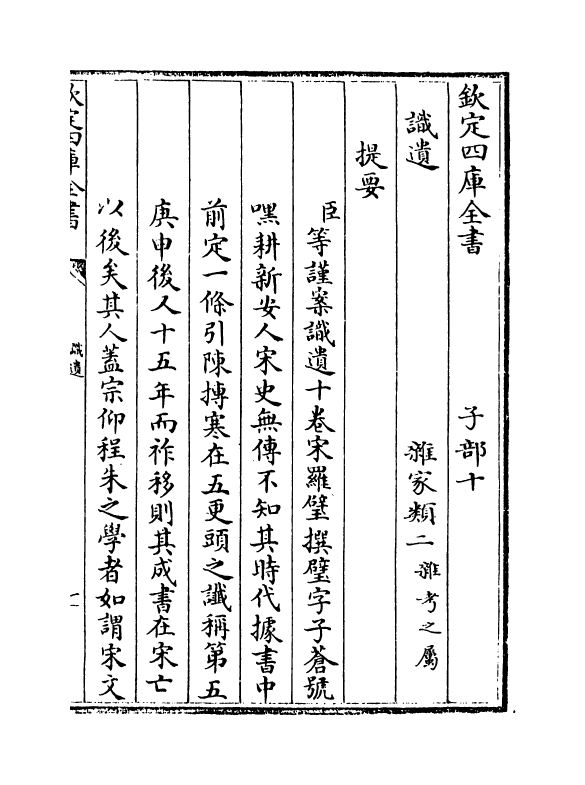 欽定四庫全書　子部十
識遺　雜家類二雜考之屬
提要
臣等謹案識遺十卷宋羅璧撰璧字子蒼號
嘿耕新安人宋史無傳不知其時代據書中
前定一條引陳摶寒在五更頭之讖稱第五
庚申後又十五年而祚移則其成書在宋亡
以後矣其人蓋宗仰程朱之學者如謂宋文
欽定四庫全書
識遺
一